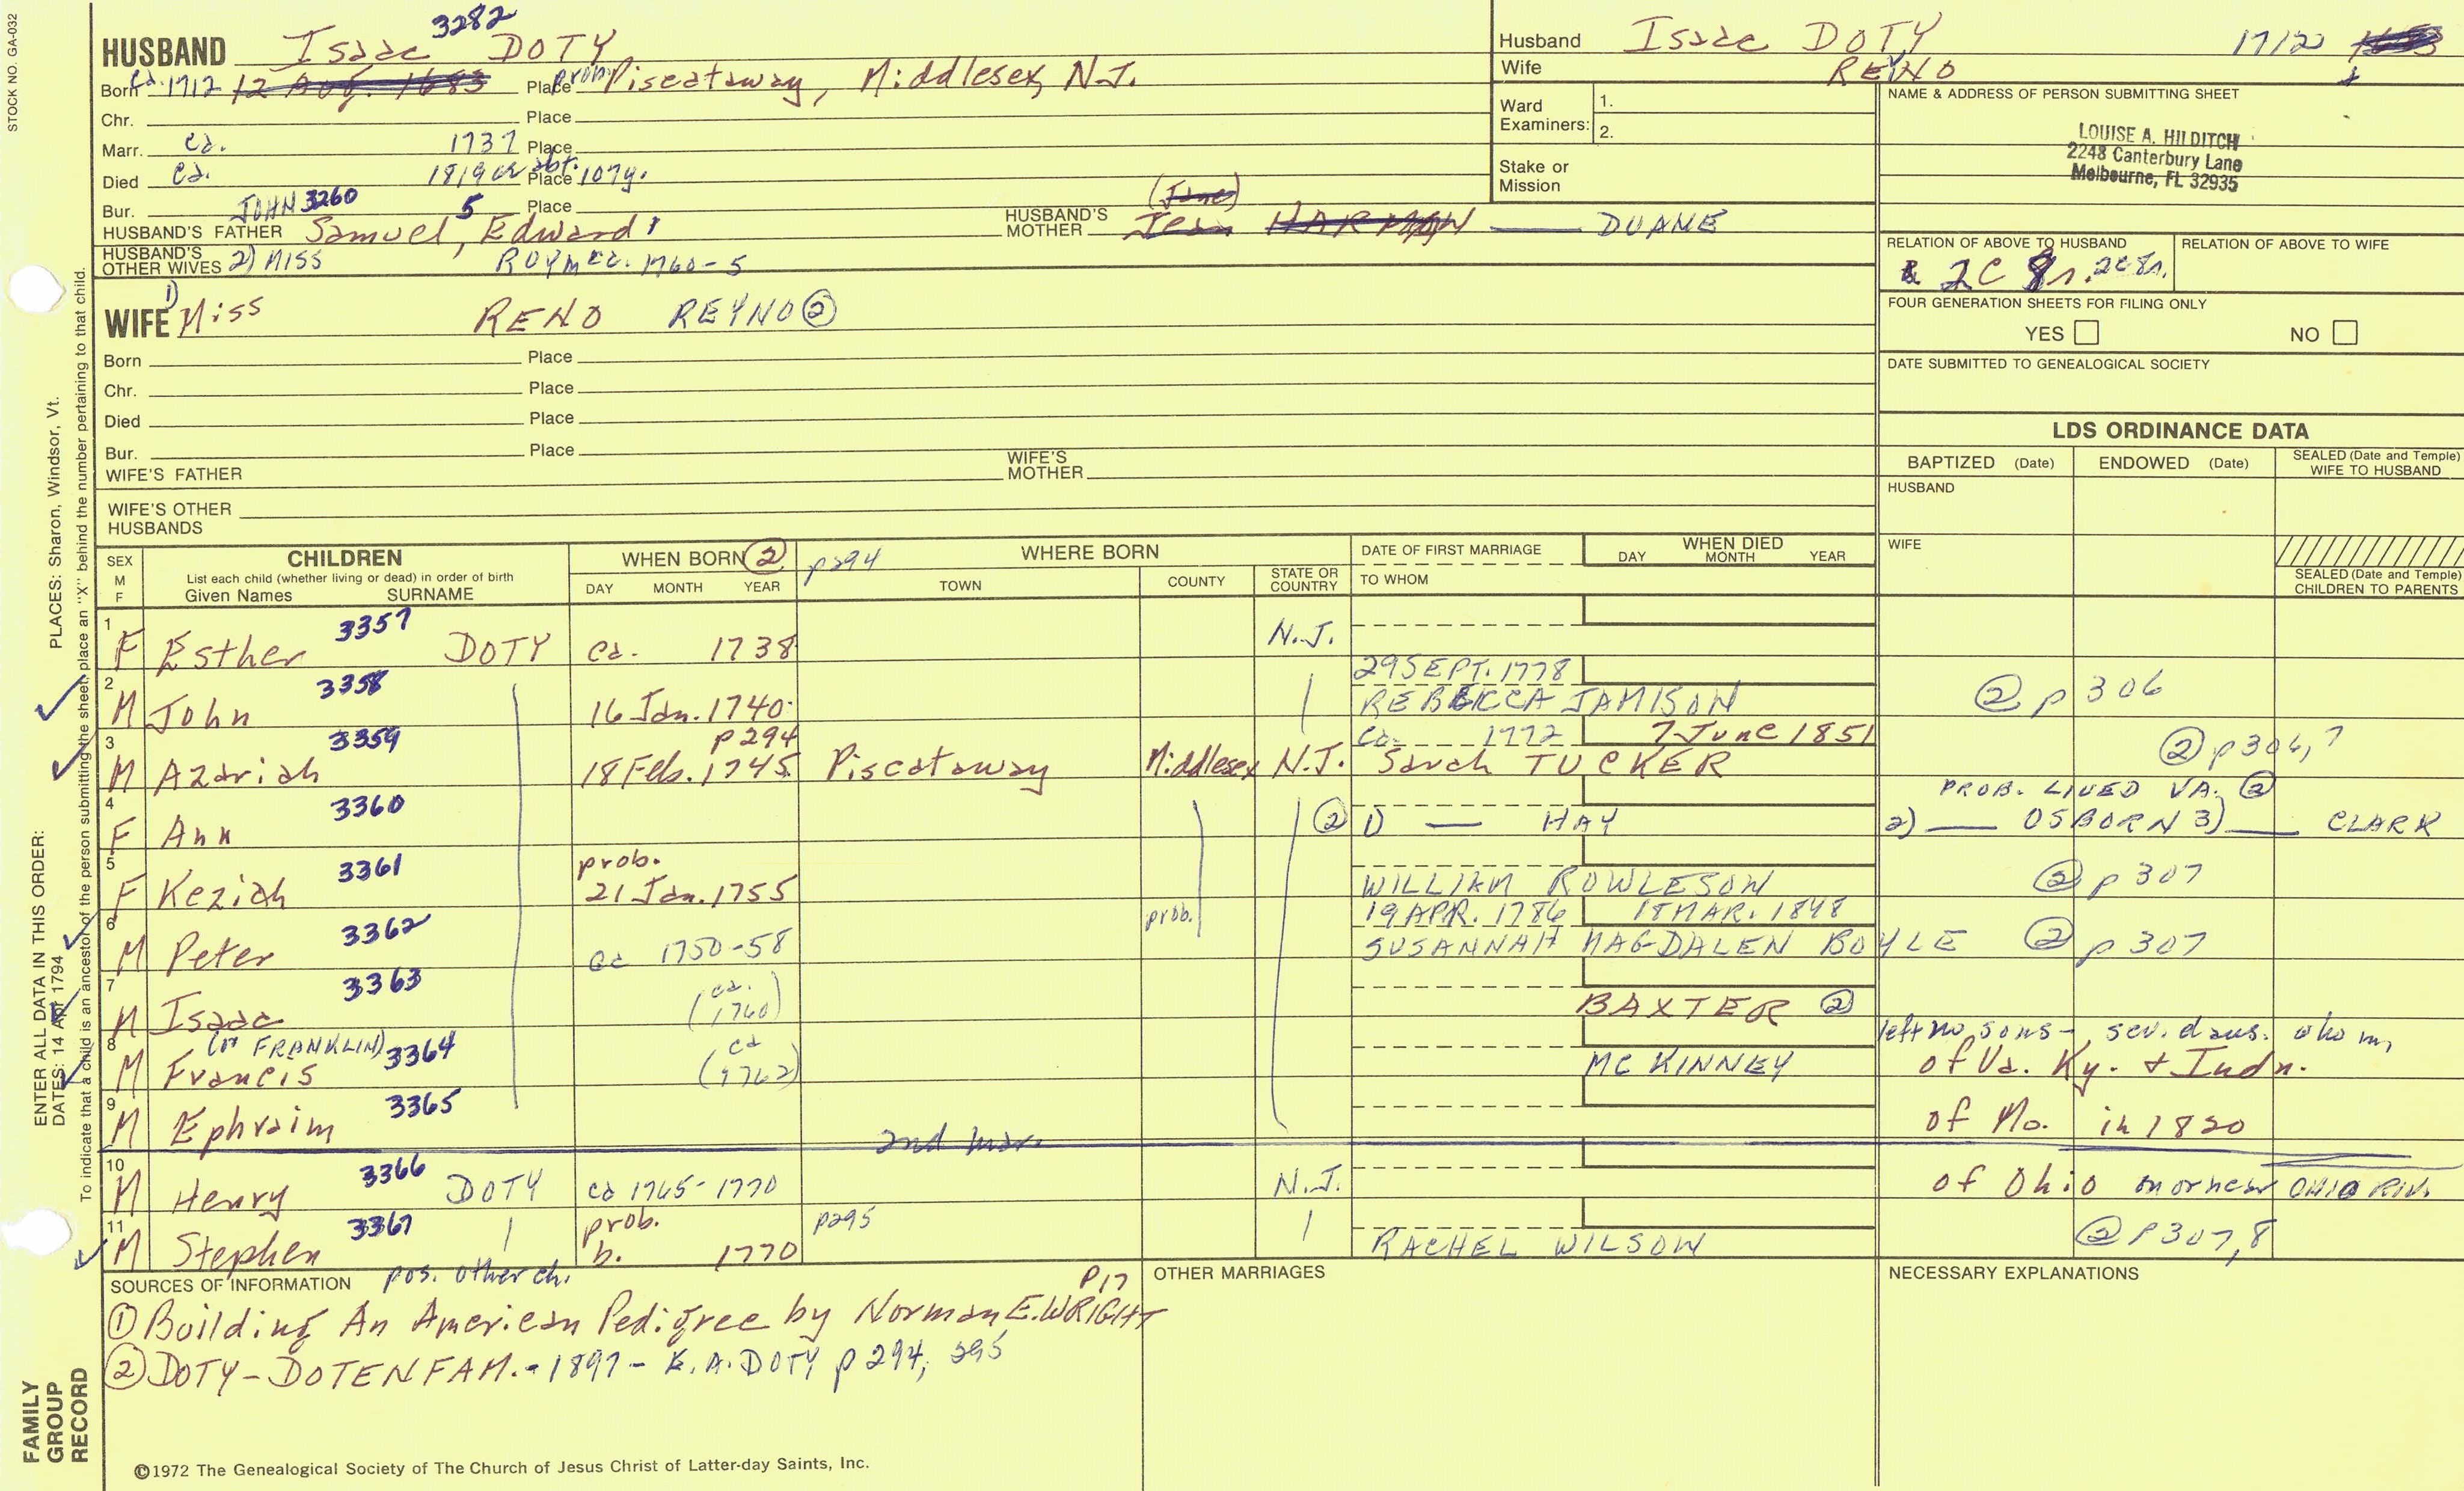 STOCK NO. GA-032
3282
HUSBAND Isaac DOTY
Born ca. 1712 12 Aug. 1683 Place prob. Piscataway, Middlesex, N.J.
Chr. Place
Marr. ca. 1737 Place
Died ca. 1819 or abt. Place 107y.
Bur. Place
JOHN 3260 5
HUSBAND'S FATHER Samuel, Edward 1
HUSBAND'S MOTHER (Jane) Jean HARMAN —— DUANE
HUSBAND'S OTHER WIVES 2) MISS ROY m ca. 1760-5
1)
WIFE Miss RENO REYNO ②
Born Place
Chr. Place
Died Place
Bur. Place
WIFE'S FATHER
WIFE'S MOTHER
WIFE'S OTHER HUSBANDS
Husband Isaac DOTY 1712
Wife REYNO
Ward Examiners: 1.
2.
Stake or Mission
NAME & ADDRESS OF PERSON SUBMITTING SHEET
LOUISE A. HILDITCH
2248 Canterbury Lane
Melbourne, FL 32935
RELATION OF ABOVE TO HUSBAND
2C 8r. 2c8r.
RELATION OF ABOVE TO WIFE
FOUR GENERATION SHEETS FOR FILING ONLY
YES NO
DATE SUBMITTED TO GENEALOGICAL SOCIETY
LDS ORDINANCE DATA
BAPTIZED (Date) ENDOWED (Date) SEALED (Date and Temple) WIFE TO HUSBAND
HUSBAND
WIFE
SEALED (Date and Temple) CHILDREN TO PARENTS
SEX M F
CHILDREN
List each child (whether living or dead) in order of birth
Given Names SURNAME
WHEN BORN ② p294
DAY MONTH YEAR
WHERE BORN
TOWN COUNTY STATE OR COUNTRY
DATE OF FIRST MARRIAGE
TO WHOM
WHEN DIED
DAY MONTH YEAR
1 F Esther 3357 DOTY ca. 1738 N.J.
2 M John 3358 16 Jan. 1740 29 SEPT. 1778 REBECCA JAMISON ② p 306
3 M Azariah 3359 p294 18 Feb. 1745 Piscataway Middlesex N.J. ca. 1772 7 June 1851 Sarah TUCKER ② p306,7
4 F Ann 3360 ② 1) — HAY 2) —— OSBORN 3) —— CLARK PROB. LIVED VA. ②
5 F Keziah 3361 prob. 21 Jan. 1755 WILLIAM ROWLESON ② p 307
6 M Peter 3362 ca 1750-58 prob. 19 APR. 1786 18 MAR. 1848 SUSANNAH MAGDALEN BOYLE ② p 307
7 M Isaac 3363 (ca. 1760) BAXTER ②
left no sons - sev. daus. who m,
8 M Francis (or FRANKLIN) 3364 (ca 1762) MC KINNEY of Va. Ky. + Indn.
9 M Ephraim 3365 of Mo. in 1820
2nd mar.
10 M Henry 3366 DOTY ca 1765-1770 N.J. of Ohio on or near OHIO RIV.
11 M Stephen 3367 prob. b. 1770 p295 RACHEL WILSON ② P307,8
SOURCES OF INFORMATION pos. other ch.
P17
① Building An American Pedigree by Norman E. WRIGHT
② DOTY-DOTEN FAM. - 1897 - E.A. DOTY p 294, 295
OTHER MARRIAGES
NECESSARY EXPLANATIONS
©1972 The Genealogical Society of The Church of Jesus Christ of Latter-day Saints, Inc.
FAMILY GROUP RECORD
ENTER ALL DATA IN THIS ORDER:
DATES: 14 Apr 1794
PLACES: Sharon, Windsor, Vt.
To indicate that a child is an ancestor of the person submitting the sheet, place an "X" behind the number pertaining to that child.